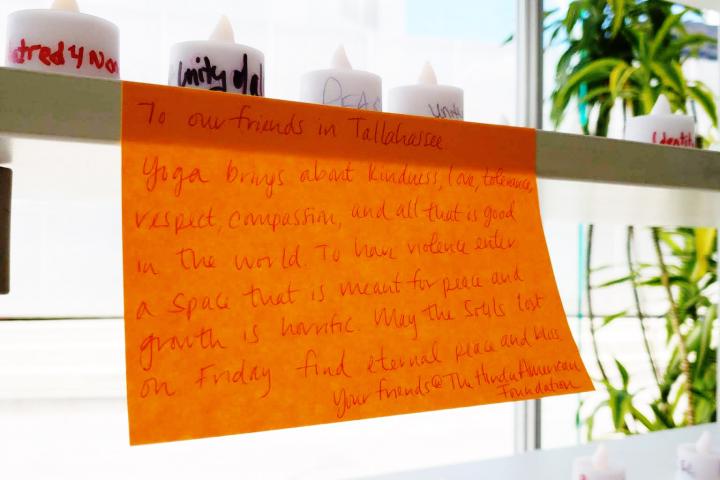 Unity
To our friends in Tallahassee
Yoga brings about kindness, love, tolerance,
respect, compassion, and all that is good
in the world. To have violence enter
a space that is meant for peace and
growth is horrific. May the souls lost
on Friday find eternal peace and bliss.
Your friends@The Hindu American
Foundation